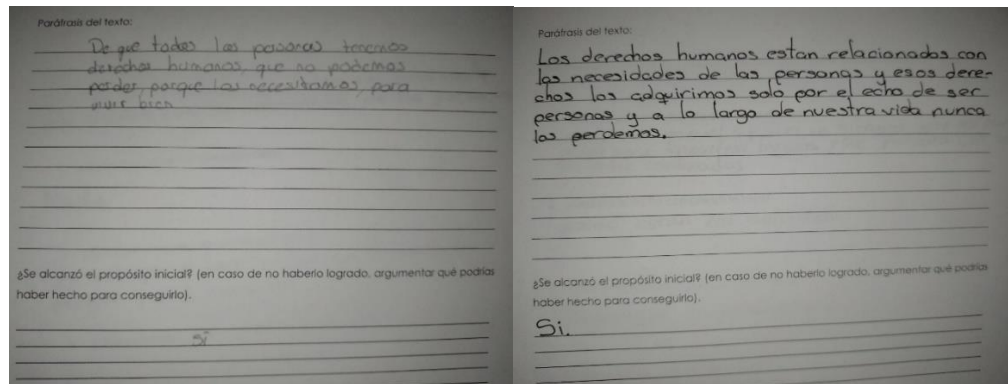 Paráfrasis del texto:
De que todas las pesonas tenemos
derechos humanos, que no podemos
perder, porque los necesitamos, para
vivir bien
¿Se alcanzó el propósito inicial? (en caso de no haberlo logrado, argumentar qué podrías
haber hecho para conseguirlo).
si
Paráfrasis del texto:
Los derechos humanos estan relacionados con
las necesidades de las personas y esos dere-
chos los adquirimos solo por el echo de ser
personas y a lo largo de nuestra vida nunca
los perdemos.
¿Se alcanzó el propósito inicial? (en caso de no haberlo logrado, argumentar qué podrías
haber hecho para conseguirlo).
Si.